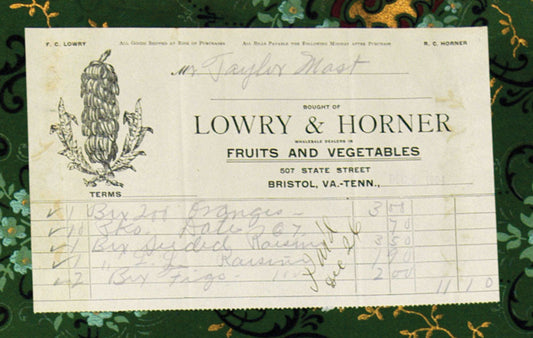 F. C. LOWRY ALL GOODS SHIPPED AT RISK OF PURCHASER ALL BILLS PAYABLE THE FOLLOWING MONDAY AFTER PURCHASE R. C. HORNER
Mr Taylor Mast
BOUGHT OF
LOWRY & HORNER
WHOLESALE DEALERS IN
FRUITS AND VEGETABLES
507 STATE STREET
BRISTOL, VA.-TENN.,
TERMS
✓ 1 Box 200 Oranges 3
✓ 10 70
✓ 1 Box Seeded Raisins 3 50
✓ 1 " Raisins 1 90
✓ 2 Box Figs 2 00
11 10
Paid
Dec 26